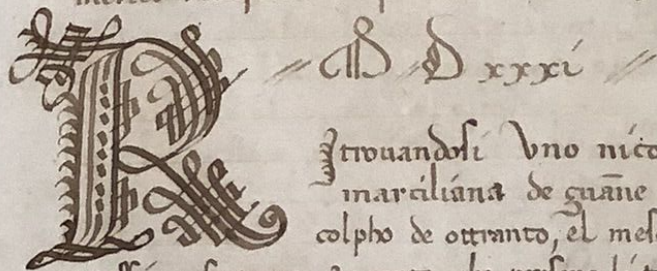 M D xxxi
Ritrovandosi Vno nico
marciliana de guãne
colpho de ottranto, el mes